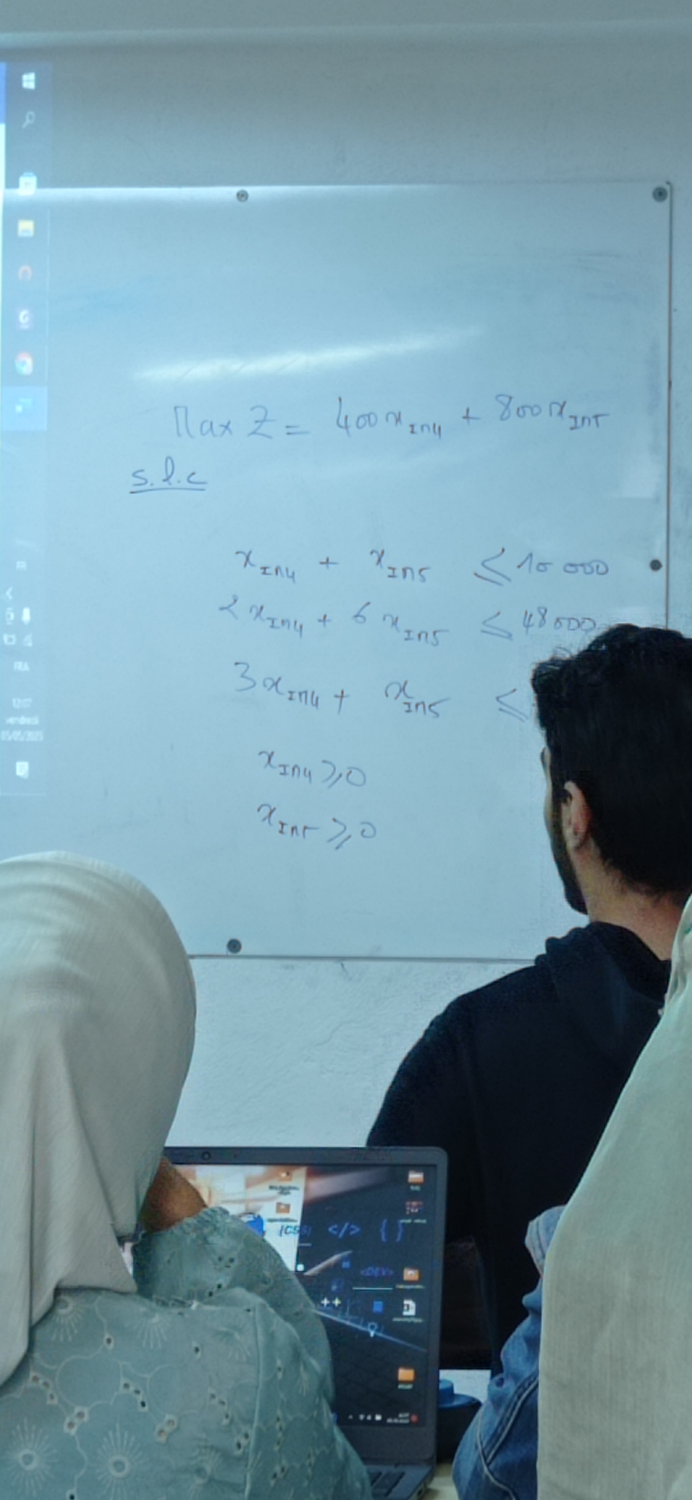 Max Z = 400 x_IM4 + 800 x_IM5
s.l.c
x_IM4 + x_IM5 ≤ 10 000
2 x_IM4 + 6 x_IM5 ≤ 48 000
3 x_IM4 + x_IM5 ≤
x_IM4 ≥ 0
x_IM5 ≥ 0
FRA
12:07
vendredi
05/05/2023
{CSS} </> { }
<DEV>
++